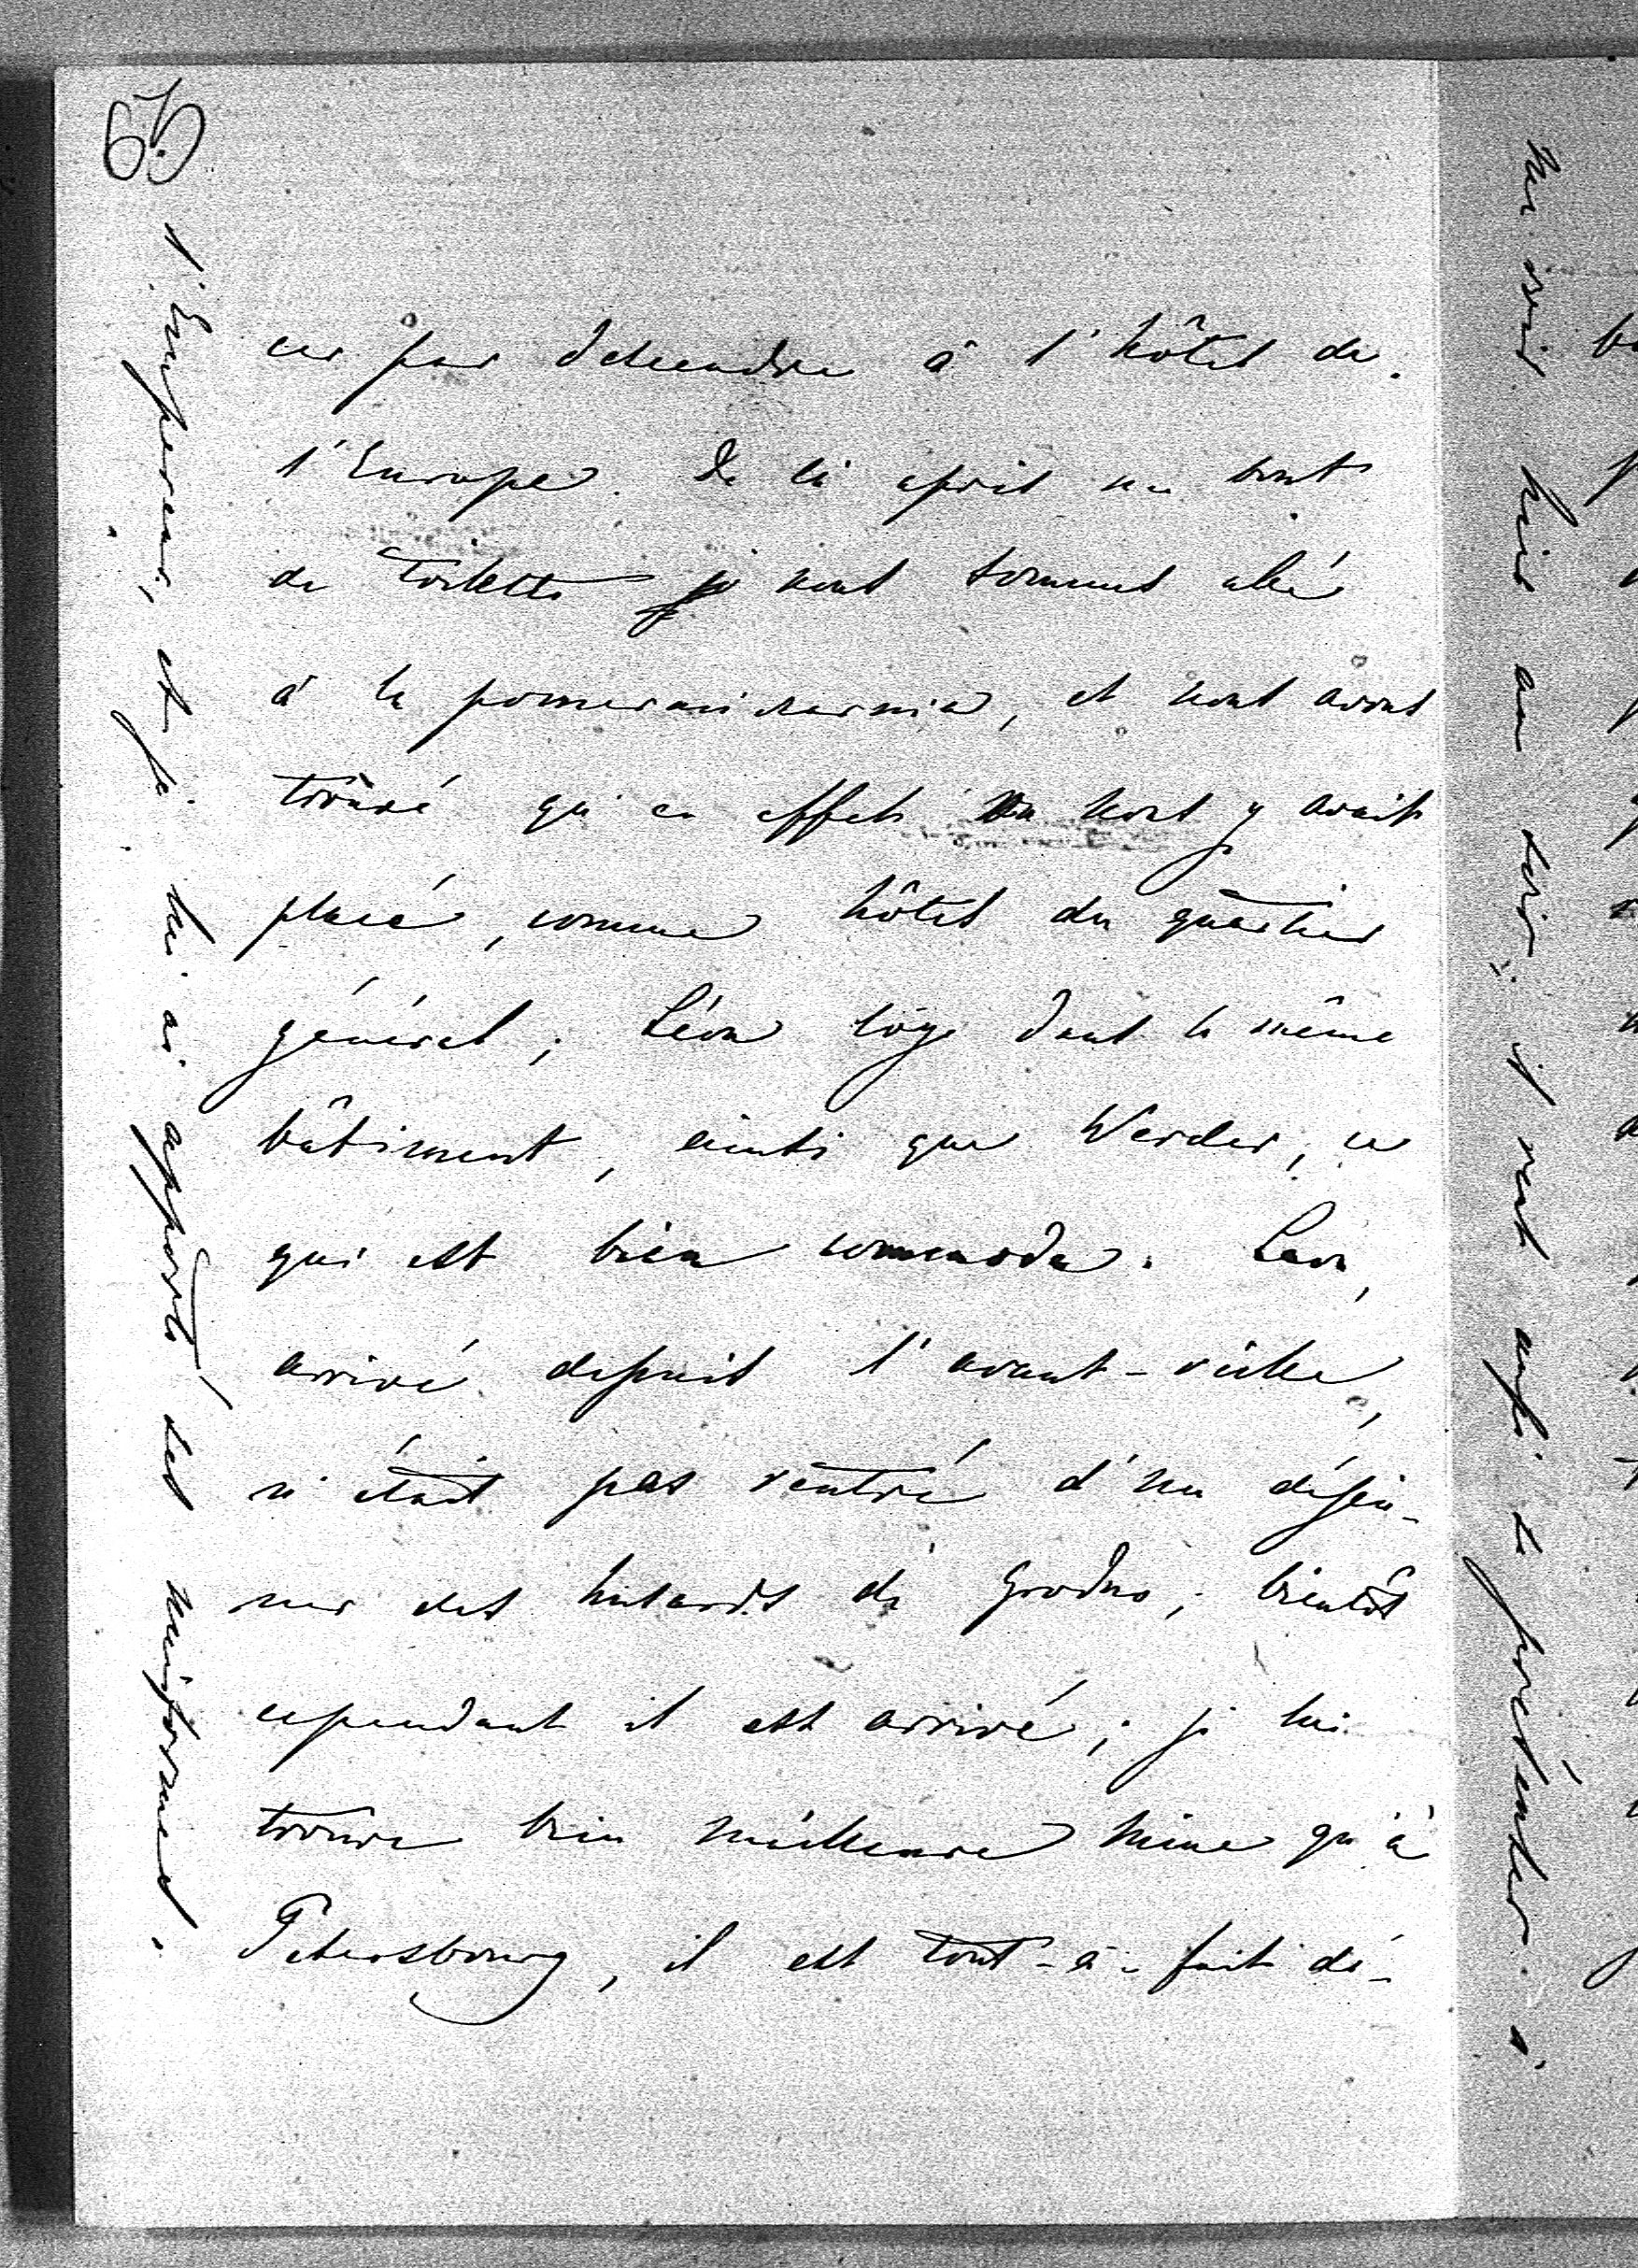 69
cer par descendre à l'hôtel de
l'Europe. De là après un bout
de toilette nous sommes allés
à la pomeranczarnia, et nous avons
trouvé qu'en effet on nous y avait
placé, comme hôtes du quartier
général; Léon loge dans le même
bâtiment, ainsi que Werder, ce
qui est bien commode. Léon,
arrivé depuis l'avant-veille,
n'était pas rentré d'un déjeu-
ner des husards de Grodno; bientôt
cependant il est arrivé; je lui
trouve bien meilleure mine qu'à
Petersbourg, il est tout-à-fait dé-
l'Empereur, et je lui ai apporté ses uniformes.
hier au soir; il veut aussi se présenter à